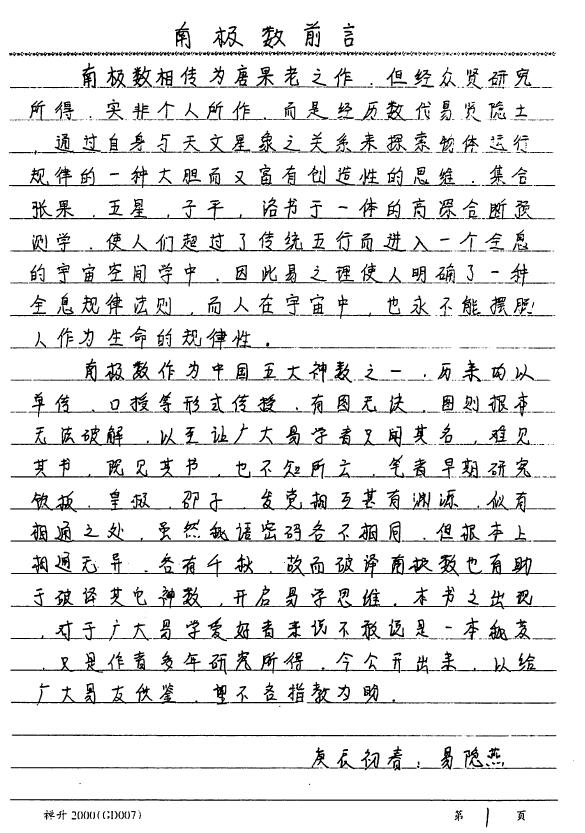 南极数前言
南极数相传为唐果老之作．但经众贤研究
所得．实非个人所作．而是经历数代易贤隐士
．通过自身与天文星象之关系来探索物体运行
规律的一种大胆而又富有创造性的思维．集合
张果．五星．子平．洛书于一体的高深合断预
测学．使人们超过了传统五行而进入一个全息
的宇宙空间学中．因此易之理使人明确了一种
全息规律法则．而人在宇宙中．也永不能摆脱
人作为生命的规律性。
南极数作为中国五大神数之一．历来均以
单传．口授等形式传授．有图无诀．图则根本
无法破解．以至让广大易学者只闻其名．难见
其书．既见其书．也不知所云．笔者早期研究
铁板．皇极．邵子．发觉相互甚有渊源．似有
相通之处．虽然秘语密码各不相同．但根本上
相通无异．各有千秋．故而破译南极数也有助
于破译其它神数．开启易学思维．本书之出现
．对于广大易学爱好者来说不敢说是一本秘芨
．只是作者多年研究所得．今公开出来．以给
广大易友供鉴．望不吝指教为助．
庚辰初春：易隐燕
禅升2000(GD007)
第 1 页